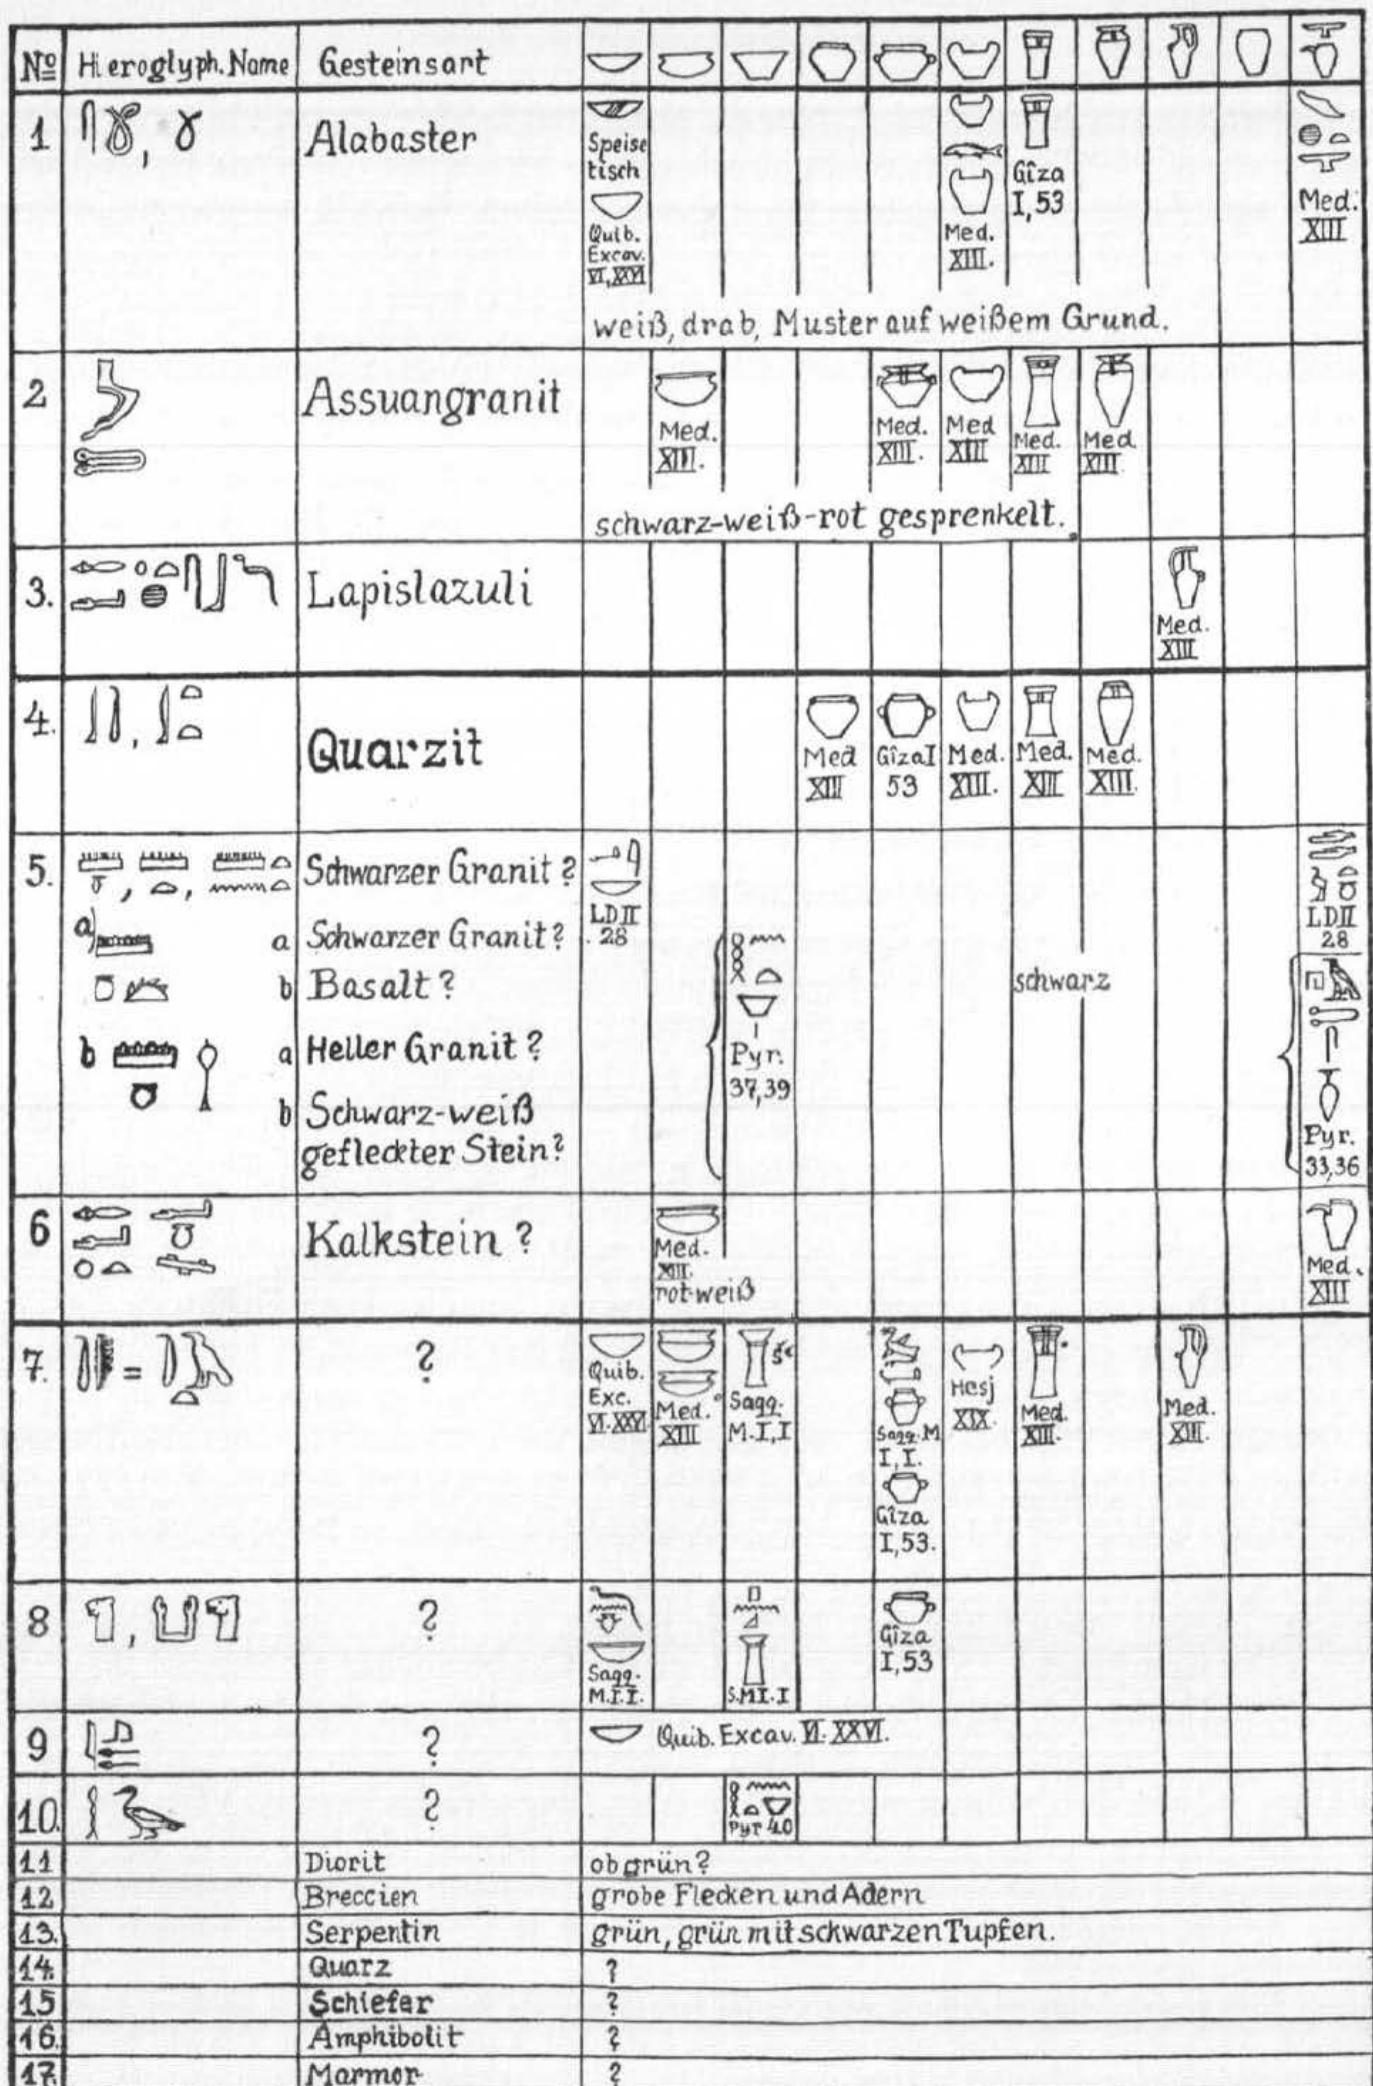 № Hieroglyph. Name Gesteinsart
1 Alabaster
Speise
tisch
Quib.
Excav.
VI, XXVI
Med.
XIII.
Gîza
I, 53
Med.
XIII
weiß, drab, Muster auf weißem Grund.
2 Assuangranit
Med. XIII.
Med. XIII.
Med XIII
Med. XIII
Med XIII
schwarz-weiß-rot gesprenkelt.
3. Lapislazuli
Med. XIII
4. Quarzit
Med XIII
Gîza I 53
Med. XIII.
Med. XIII
Med. XIII.
5. Schwarzer Granit?
LD II
28
a) a Schwarzer Granit?
b Basalt?
b a Heller Granit?
b Schwarz-weiß
gefleckter Stein?
Pyr.
37,39
schwarz
LD II
28
Pyr.
33,36
6 Kalkstein?
Med.
XIII.
rot-weiß
Med.
XIII
7. = ?
Quib.
Exc.
VI. XXVI
Med.
XIII
Saqq.
M. I, I
Saqq. M.
I, I.
Gîza
I, 53.
Hesj
XIX.
Med.
XIII.
Med.
XIII
8 ?
Saqq.
M. I. I.
S.M I. I
Gîza
I, 53
9 ?
Quib. Excav. VI. XXVI.
10. ?
Pyr 40
11 Diorit ob grün?
12 Breccien grobe Flecken und Adern
13. Serpentin grün, grün mit schwarzen Tupfen.
14. Quarz ?
15 Schiefer ?
16. Amphibolit ?
17. Marmor ?